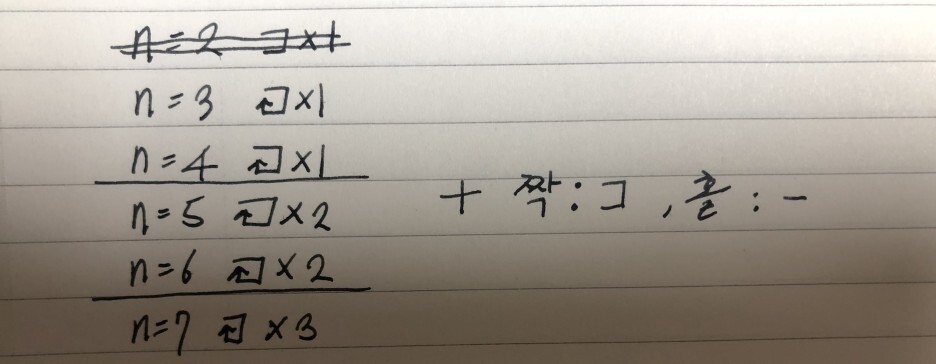 n=2 コ×1
n=3 ×1
n=4 ×1
n=5 ×2
+ 짝: コ, 홀: -
n=6 ×2
n=7 ×3